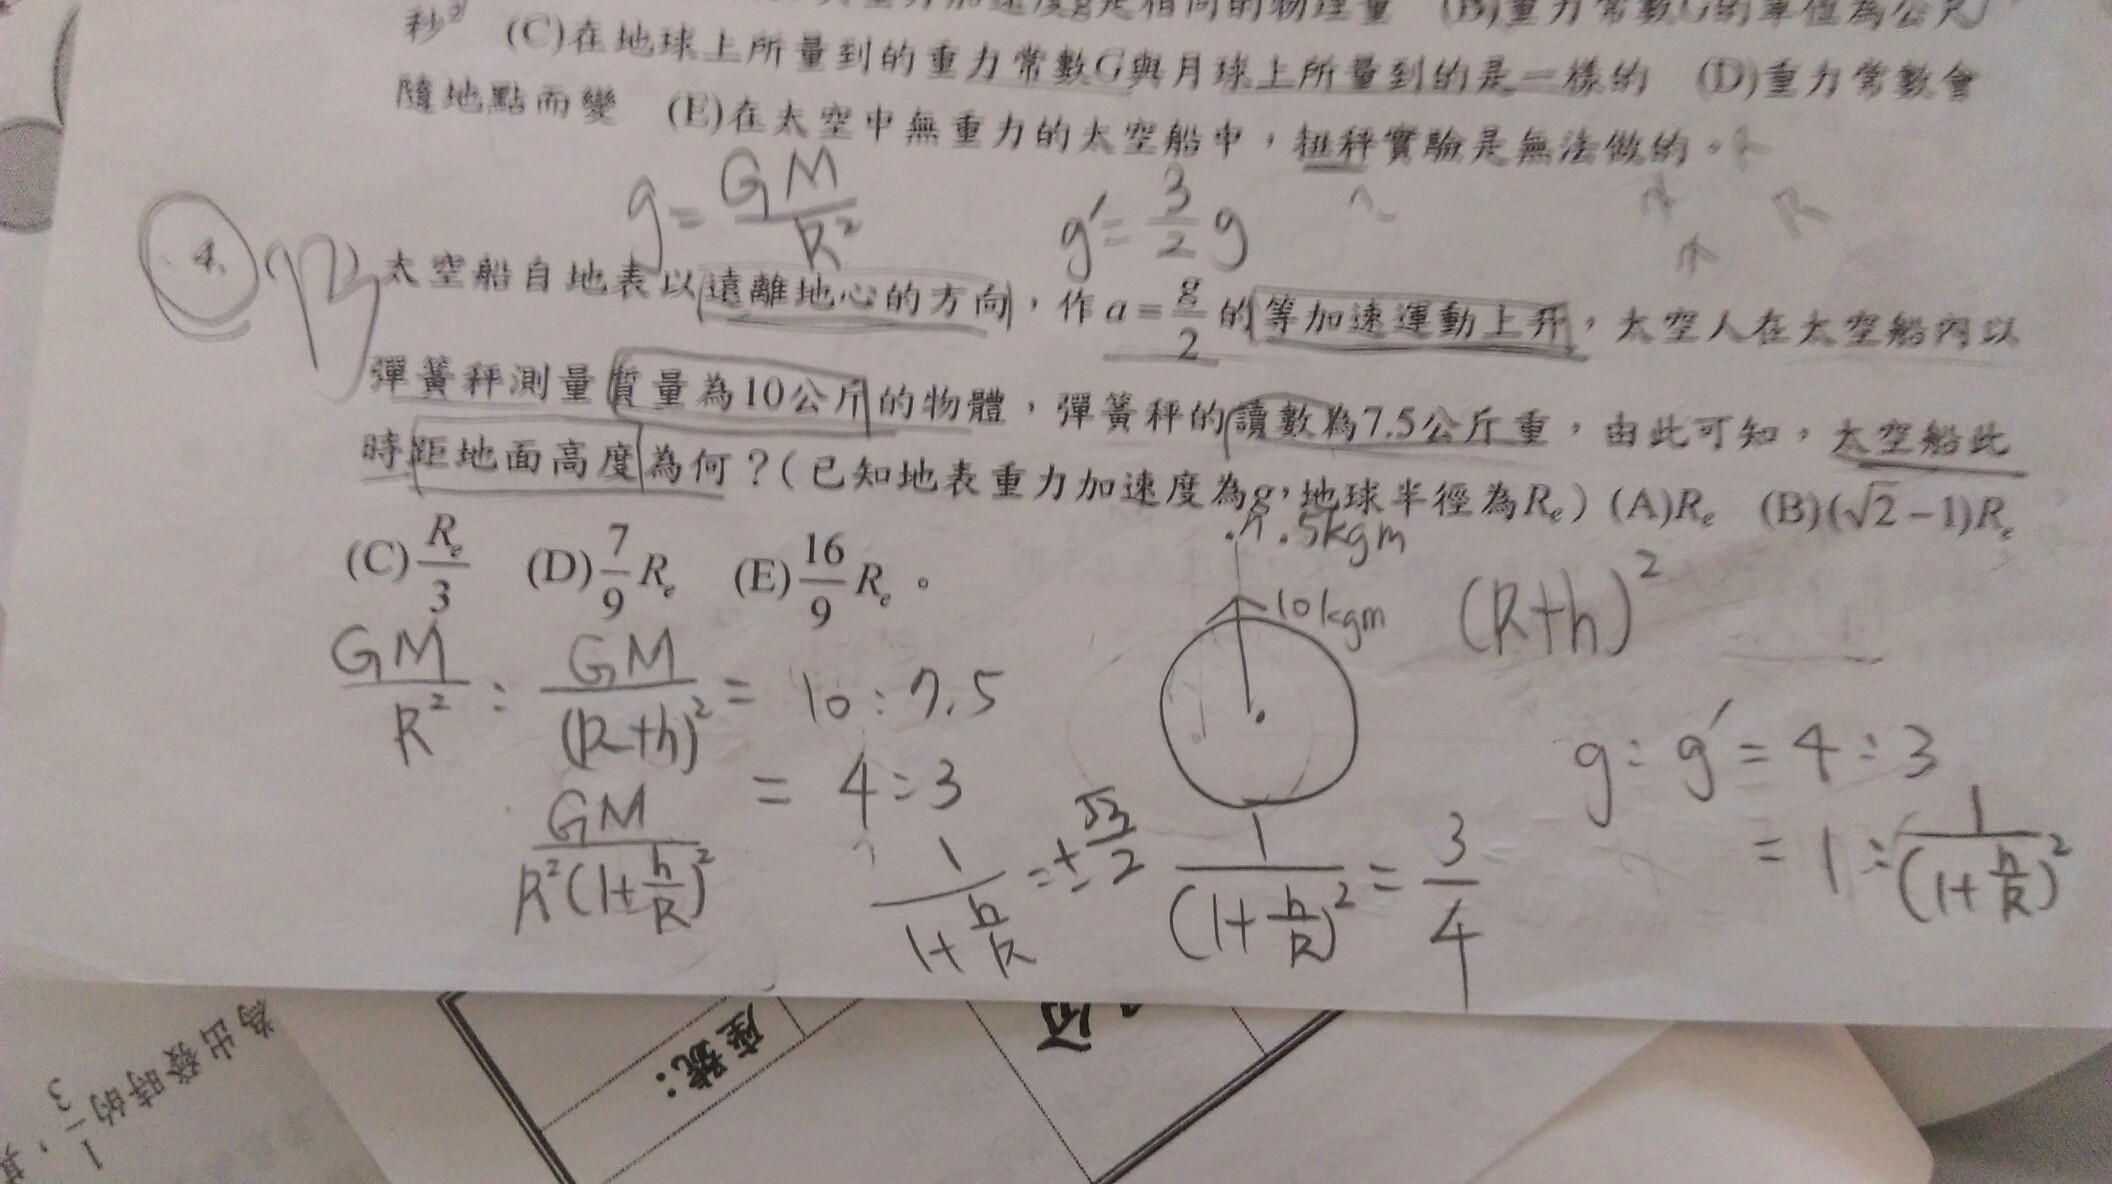 重力加速度g是相同的物理量 (B)重力常數G的單位為公尺/
秒² (C)在地球上所量到的重力常數G與月球上所量到的是一樣的 (D)重力常數會
隨地點而變 (E)在太空中無重力的太空船中，扭秤實驗是無法做的。
g = GM/R² g' = 3/2 g
4. B 太空船自地表以遠離地心的方向，作 a = g/2 的等加速運動上升，太空人在太空船內以
彈簧秤測量質量為10公斤的物體，彈簧秤的讀數為7.5公斤重，由此可知，太空船此
時距地面高度為何？(已知地表重力加速度為g，地球半徑為Re) (A)Re (B)(√2-1)Re
(C)Re/3 (D)7/9 Re (E)16/9 Re。
7.5kgm
10kgm
(R+h)²
GM/R² : GM/(R+h)² = 10 : 7.5
= 4 : 3
GM/R²(1+h/R)²
g : g' = 4 : 3
= 1 : 1/(1+h/R)²
1/(1+h/R)² = 3/4
1/(1+h/R) = ±√3/2
座號：
為出發時的1/3，